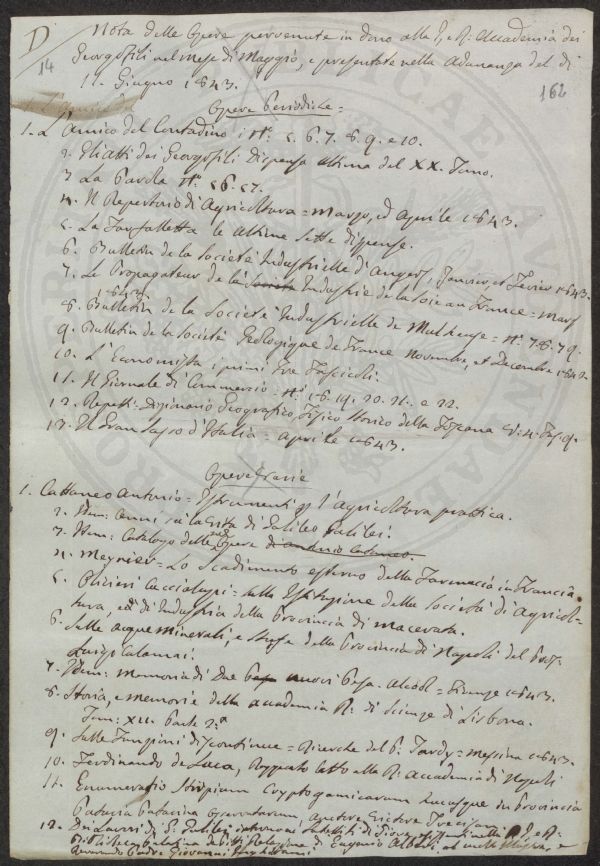 D
14
162
Nota delle Opere pervenute in dono alla I. e R. Accademia dei
Georgofili nel mese di Maggio, e presentate nella adunanza del dì
11. Giugno 1843.
Opere Periodiche =
1. L'Amico del Contadino: Nⁱ. 5. 6. 7. 8. 9. e 10.
2. Gli atti dei Georgofili Dispensa ultima del XX. Tomo.
3. La Parola Nⁱ. 56. 57.
4. Il Repertorio di Agricoltura = Marzo, ed Aprile 1843.
5. La Farfalletta le ultime sette dispense.
6. Bulletin de la Société Industrielle d'Angers, Janvier et Févier 1843.
7. Le Propagateur de la Societé Industrie de la Soie au France = Mars
1843.
8. Bulletin de la Societé Industrielle de Mulhouse = Nⁱ. 78. 79.
9. Bulletin de la Société Geologique de France Novembre, et Decembre 1842.
10. L'Economista i primi tre Fascicoli.
11. Il Giornale di Commercio = Nⁱ. 18. 19. 20. 21. e 22.
12. Repetti = Dizionario Geografico, Fisico Storico della Toscana Fas. 9.
13. Il Gran Sasso d'Italia = Aprile 1843.
Opere Varie
1. Cattaneo Antonio = Istrumenti per l'agricoltura prattica.
2. Idem: Cenni su la Vita di Galileo Galilei.
3. Idem: Catalogo delle sue Opere di Antonio Cattaneo.
4. Meynier = Lo Scadimento estremo della Farmacia in Francia
5. Olivieri Caccialupi = sulla Istituzione della Società di Agricol-
tura, ed di Industria della Provincia di Macerata.
6. Sulle acque minerali, e Stufe della Provincia di Napoli del Prof.
Luigi Calamai.
7. Idem: Memoria di due nuovi Alcool = Firenze 1843.
8. Storia, e memorie della Accademia R. di Scienze di Lisbona.
Tom: XII. Parte 2.ª
9. Sulle Funzioni discontinue = Ricerche del P. Tardy = Messina 1843.
10. Ferdinando de Luca, Rapporto letto alla R. Accademia di Napoli
11. Enumeratio Stirpium Cryptogamicarum hucusque in Provincia
Patavina auctore Trevisan
12. Dei Lavori di G. Galilei intorno ai Satelliti di Giove I. e R.
Biblioteca Palatina di Eugenio Albèri
Padre Giovanni